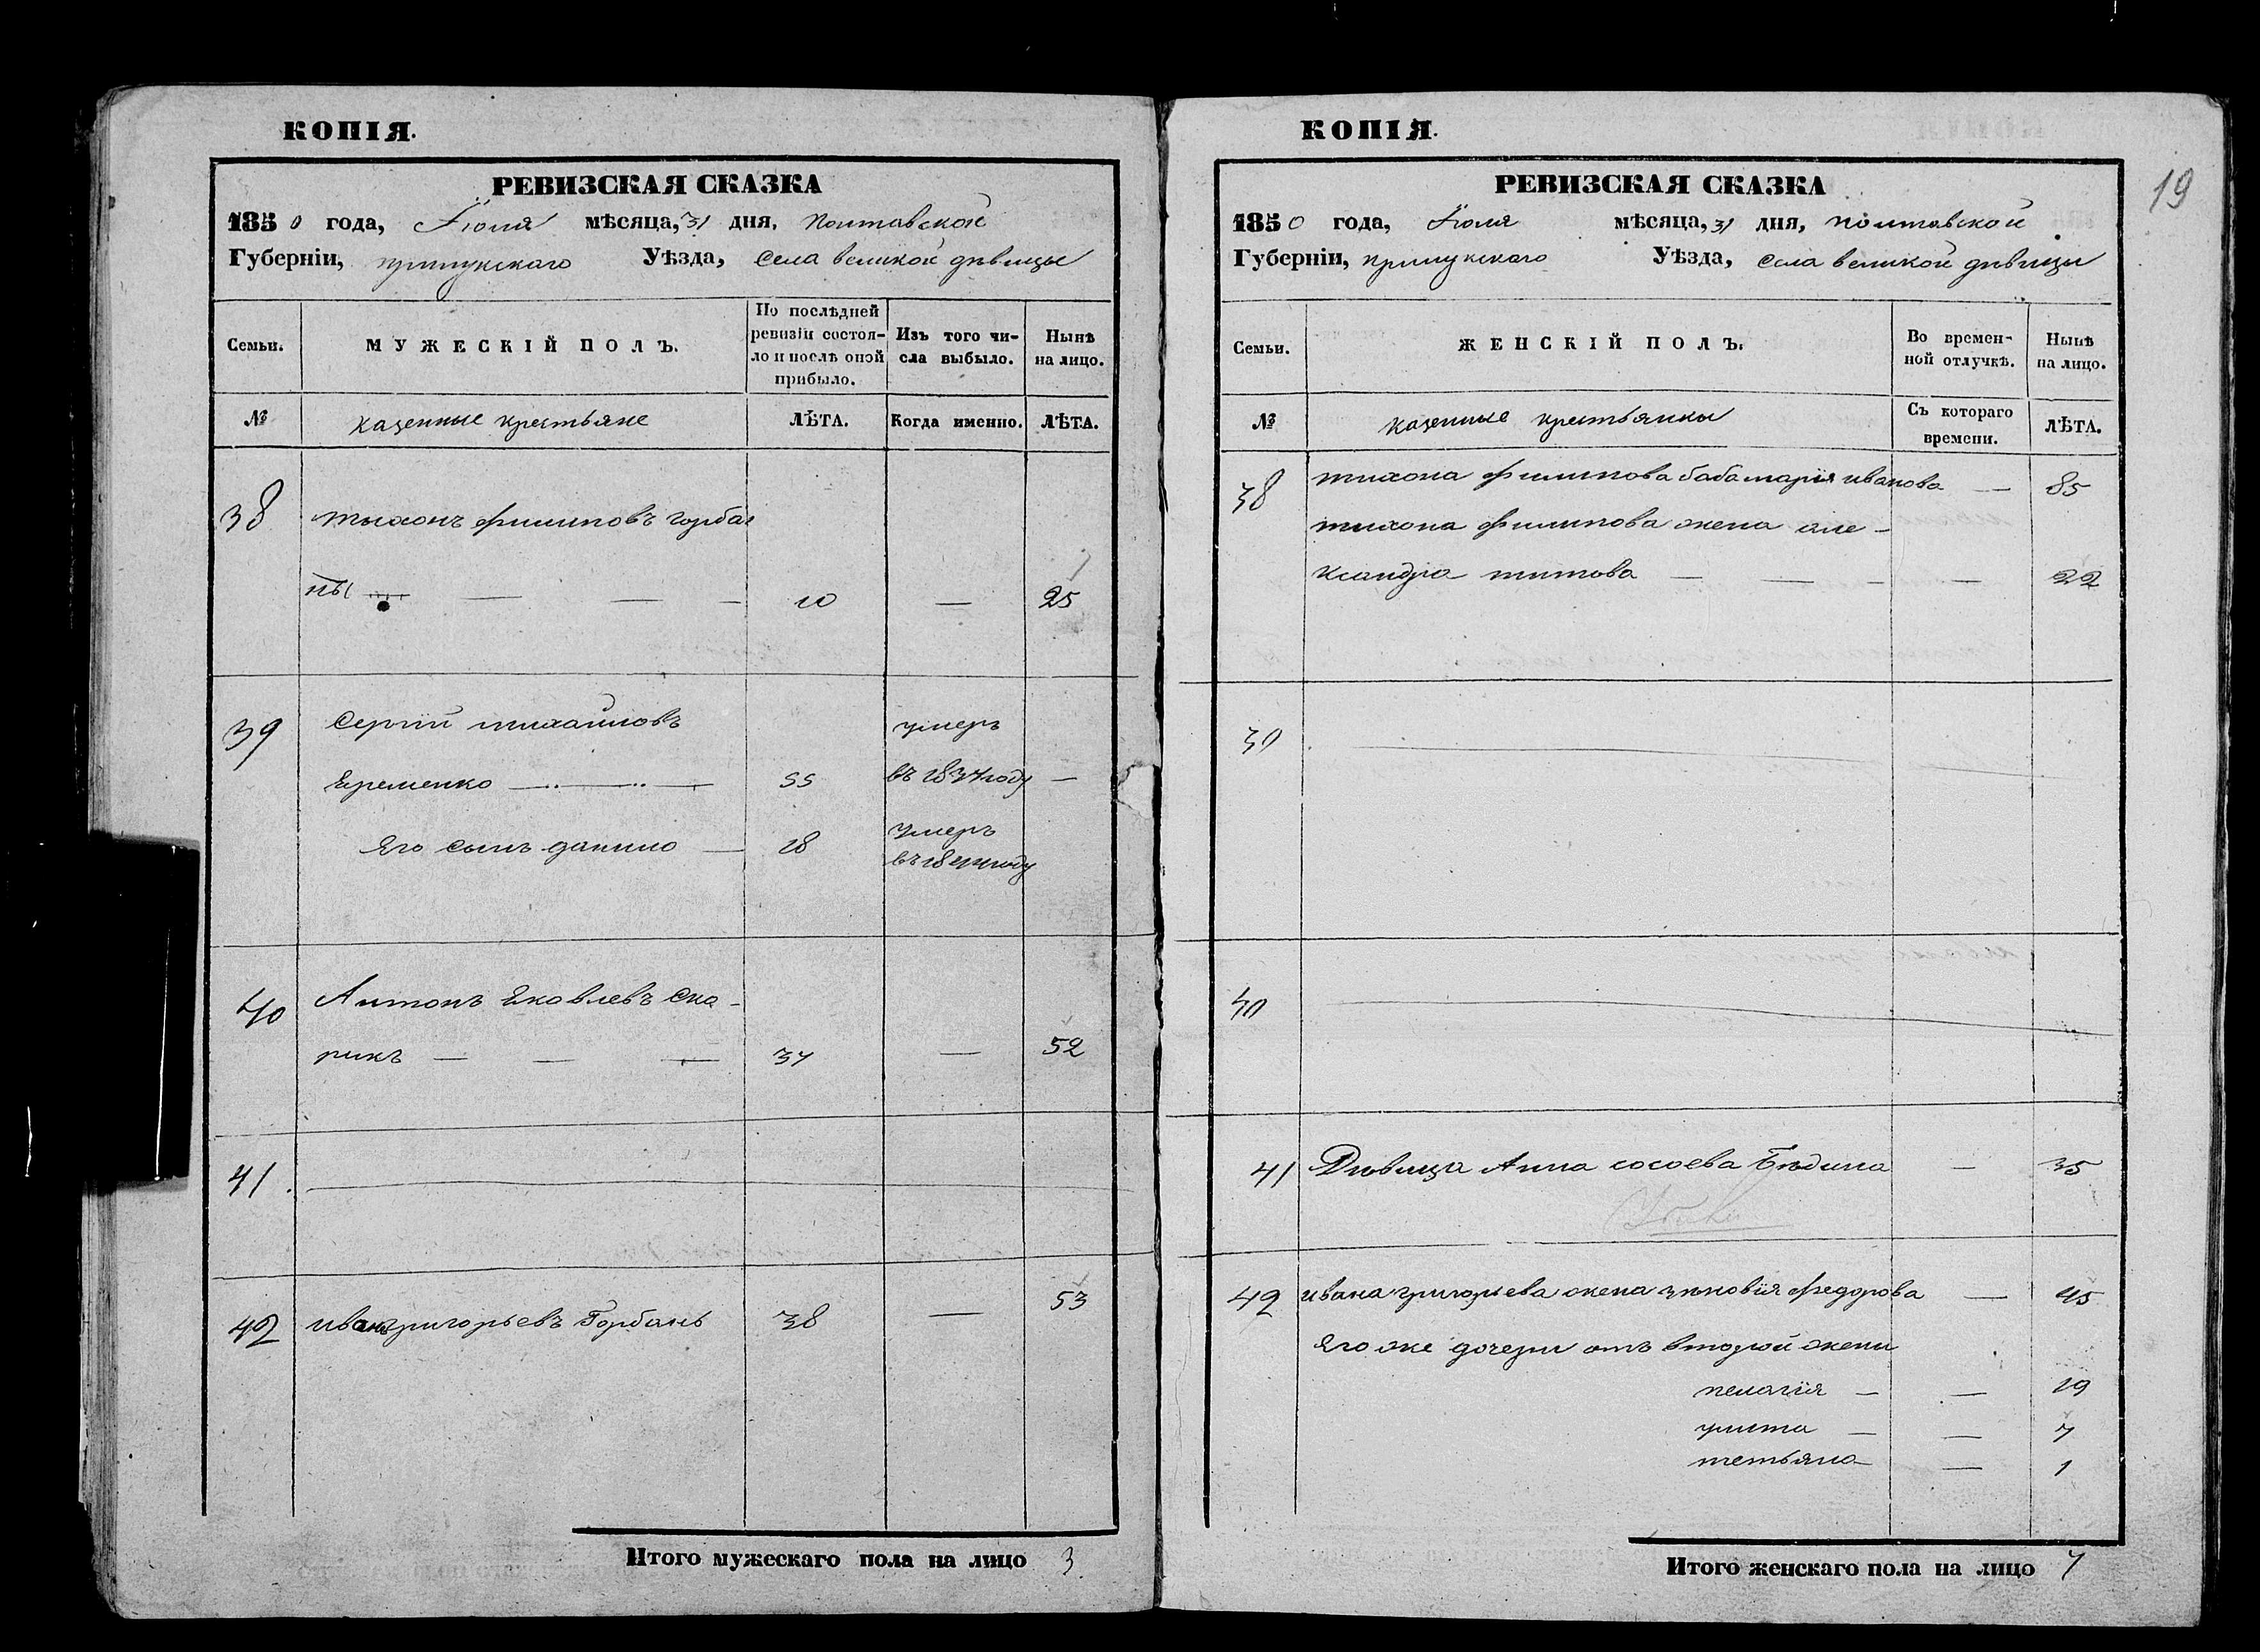 КОПІЯ.
РЕВИЗСКАЯ СКАЗКА
1850 года, Іюля мѣсяца, 31 дня, полтавской
Губерніи, прилукскаго Уѣзда, села великой дѣвицы
Семьи.
МУЖЕСКІЙ ПОЛЪ.
По послѣдней ревизіи состояло и послѣ оной прибыло.
Изъ того числа выбыло.
Нынѣ на лицо.
№ казенные крестьяне ЛѢТА. Когда именно. ЛѢТА.
38 тихонъ филиповъ горба
нь — — — 10 — 25
39 Сергій михайловъ умеръ
Яременко — — 55 въ 1837 году —
Его сынъ данило — 18 умеръ
въ 1841 году
40 Антонъ Яковлевъ Ска-
рикъ — — — 37 — 52
41.
42 иванъ григорьевъ Горбань 38 — 53
Итого мужескаго пола на лицо 3
КОПІЯ.
19
РЕВИЗСКАЯ СКАЗКА
1850 года, Іюля мѣсяца, 31 дня, полтавской
Губерніи, прилукскаго Уѣзда, села великой дѣвицы
Семьи.
ЖЕНСКІЙ ПОЛЪ.
Во временной отлучкѣ.
Нынѣ на лицо.
№ казенные крестьянки Съ котораго времени. ЛѢТА.
38 тихона филипова баба марія иванова — 85
тихона филипова жена але-
ксандра титова — — — — 22
39
40
41 Дѣвица Анна сосоева Бѣдина — 35
42 ивана григорьева жена зѣновія федорова — 45
Его же дочери отъ второй жени
пелагія — — 19
улита — — 7
тетьяна — — 1
Итого женскаго пола на лицо 7